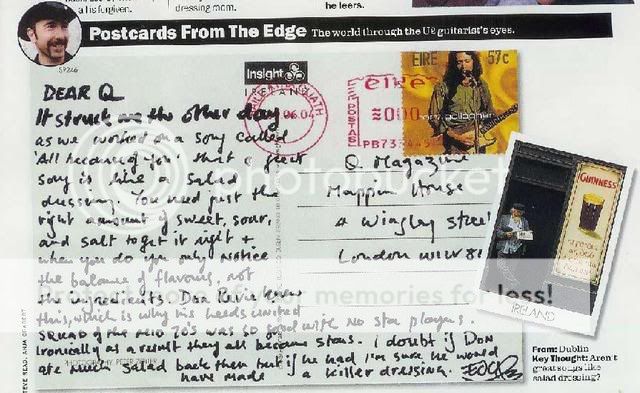 a his forgiven.
dressing mom.
he leers.
Postcards From The Edge The world through the U2 guitarist's eyes.
Insight
IRELAND
BAILE ÁTHA CLIATH
06.04
eire
≈000
POSTAS
PB73
EIRE 57c
rory gallagher
DEAR Q
It struck me the other day
as we worked on a song called
'All because of you' that a great
song is like a salad
dressing. You need just the
right amount of sweet, sour,
and salt to get it right +
when you do you only notice
the balance of flavours, not
the ingredients. Don Revie knew
this, which is why his Leeds United
SQUAD of the mid 70's was so good with no star players.
Ironically as a result they all became stars. I doubt if Don
ate much salad back then but if he had I'm sure he would
have made a killer dressing. EDGE
Q Magazine
Mappin House
4 Winsley Street
London W1W 8
GUINNESS
IRELAND
photobucket
host, store more memories for less!
From: Dublin
Key Thought: Aren't
great songs like
salad dressing?